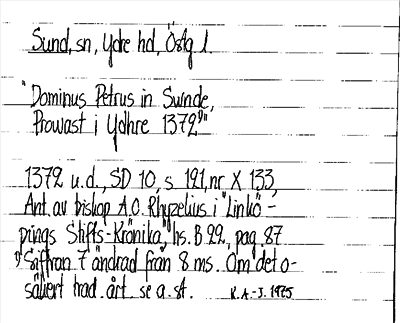 Sund, sn, Ydre hd, Östg l.
"Dominus Petrus in Swnde,
Prowast i Ydhre 1372¹⁾"
1372 u.d., SD 10, s 121, nr X 133,
Ant. av biskop A.O. Rhyzelius i "Linkö-
pings Stifts-Krönika," hs. B 22, pag. 87
1) Siffran 7 ändrad från 8 ms. Om det o-
säkert trad. årt. se a. st. R.A.-J. 1975